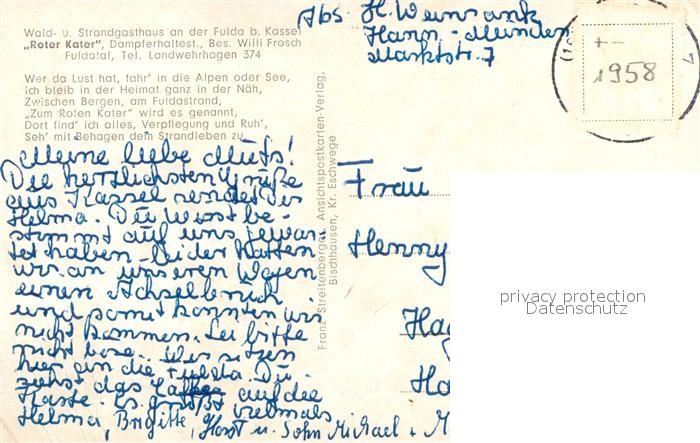 Wald- u. Strandgasthaus an der Fulda b. Kassel
„Roter Kater", Dampferhaltest., Bes. Willi Frosch
Fuldatal, Tel. Landwehrhagen 374
Wer da Lust hat, fahr' in die Alpen oder See,
ich bleib in der Heimat ganz in der Näh,
Zwischen Bergen, am Fuldastrand,
„Zum Roten Kater" wird es genannt,
Dort find' ich alles, Verpflegung und Ruh',
Seh' mit Behagen dem Strandleben zu
Abs. H. Weinrank
Hann.-Münden
Marktstr. 7
+-
1958
Meine liebe Muts!
Die herzlichsten Grüße
aus Kassel sendet Dir
Helma. Du wirst be-
stimmt auf uns gewar-
tet haben. Leider hatten
wir an unserem Wagen
einen Achselbruch
und somit konnten wir
nicht kommen. Sei bitte
nicht böse. Wir sitzen
hier an die Fulda. Du
siehst das auf die
Karte. Es grüßt vielmals
Helma, Brigitte, Horst u. Sohn Michael +
Franz Streitenberger, Ansichtspostkarten-Verlag,
Bischhausen, Kr. Eschwege
Frau
Henny
Hag
Ha
privacy protection
Datenschutz